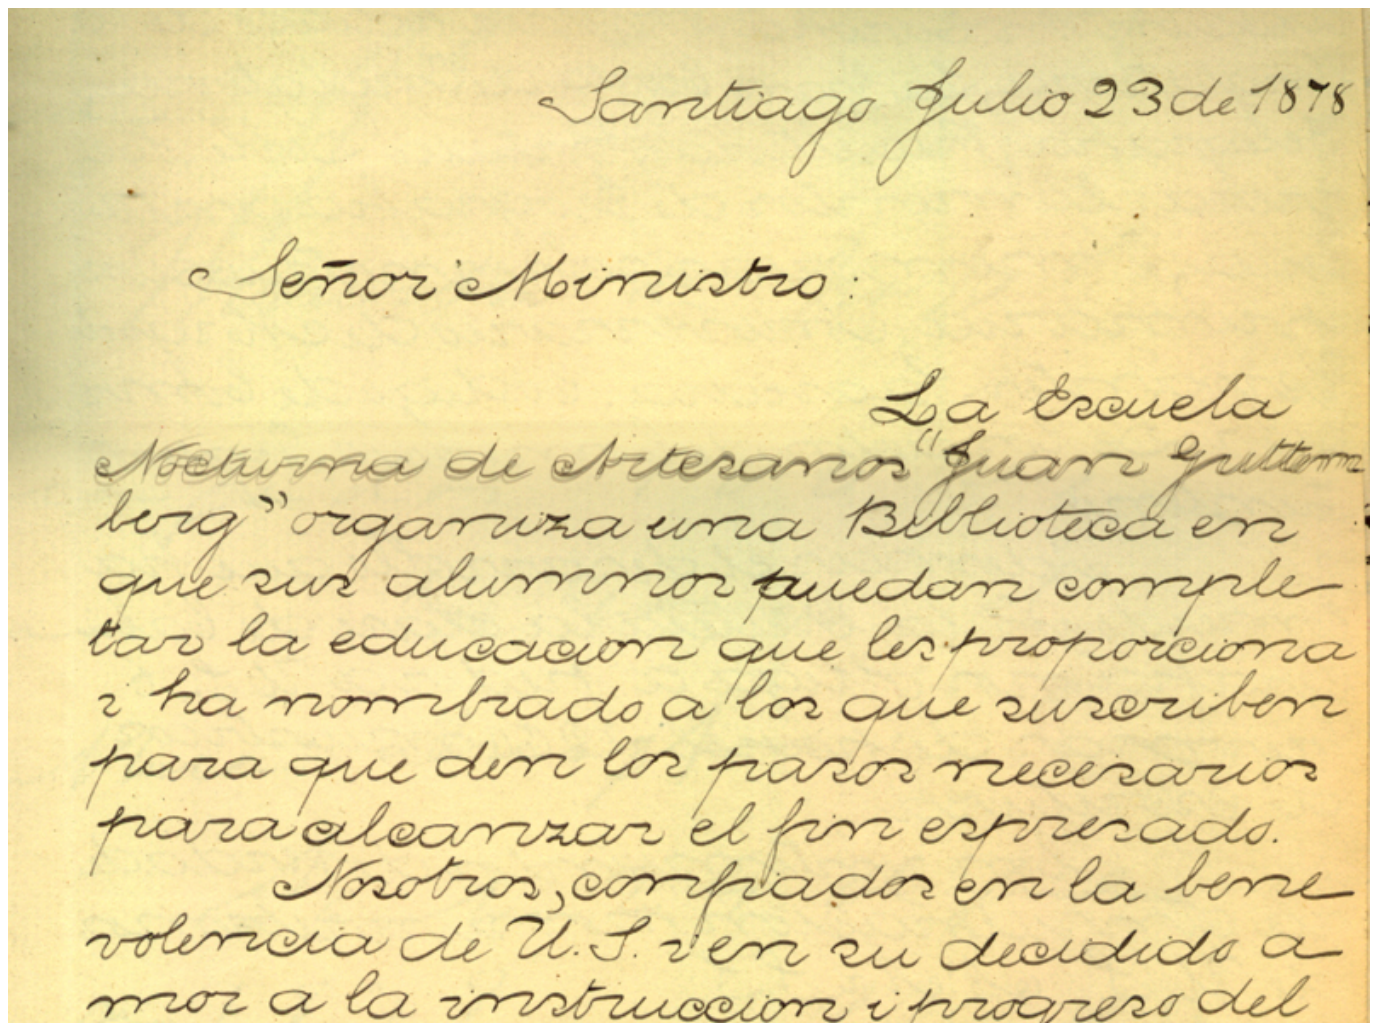 Santiago Julio 23 de 1878
Señor Ministro:
La Escuela
Nocturna de Artesanos "Juan Guttem
berg" organiza una Biblioteca en
que sus alumnos puedan comple
tar la educacion que les proporciona
i ha nombrado a los que suscriben
para que den los pasos necesarios
para alcanzar el fin espresado.
Nosotros, confiados en la bene
volencia de U. S. i en su decidido a
mor a la instruccion i progreso del